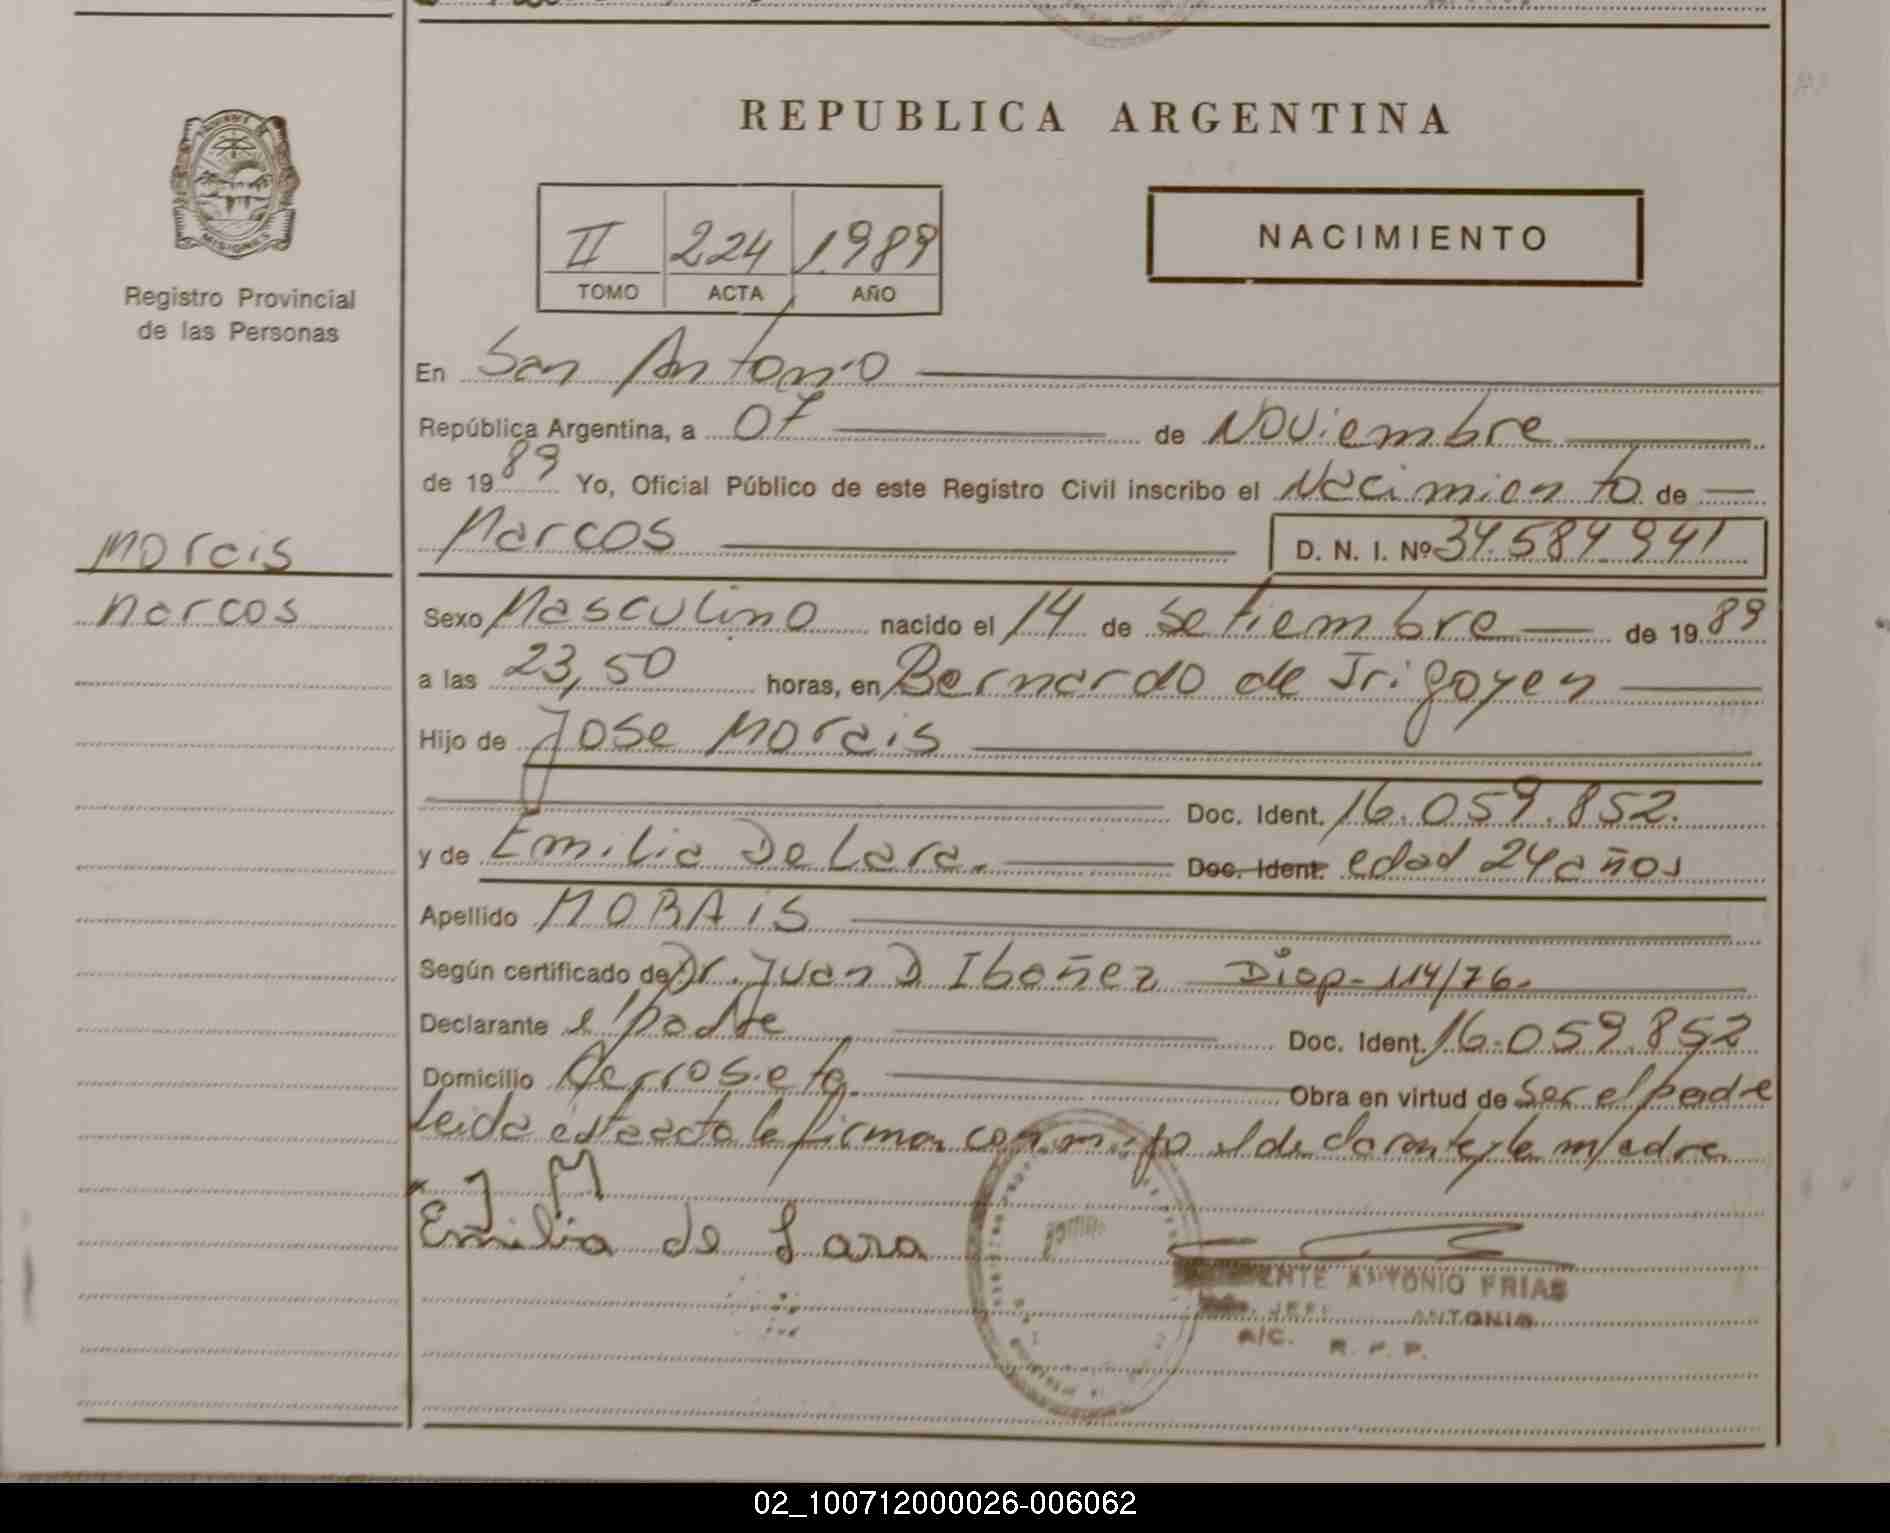 MISIONES
Registro Provincial
de las Personas
REPUBLICA ARGENTINA
II 224 1.989
TOMO ACTA AÑO
NACIMIENTO
En San Antonio
República Argentina, a 07 de Noviembre
de 19 89 Yo, Oficial Público de este Registro Civil inscribo el Nacimiento de
Marcos D. N. I. Nº 34.584.941
Morais
Marcos
Sexo Masculino nacido el 14 de Setiembre de 19 89
a las 23,50 horas, en Bernardo de Irigoyen
Hijo de Jose Morais
Doc. Ident. 16.059.852.
y de Emilia De Lara. Doc. Ident. edad 24 años
Apellido MORAiS
Según certificado de Dr. Juan D Ibañez Disp- 114/76.
Declarante el padre Doc. Ident. 16.059.852
Domicilio Obra en virtud de Ser el padre
Leida esta acta la firman conmigo el declarante y la madre
J M
Emilia de Lara
ANTONIO FRIAS
ANTONIO
A/C. R. P. P.
02_100712000026-006062